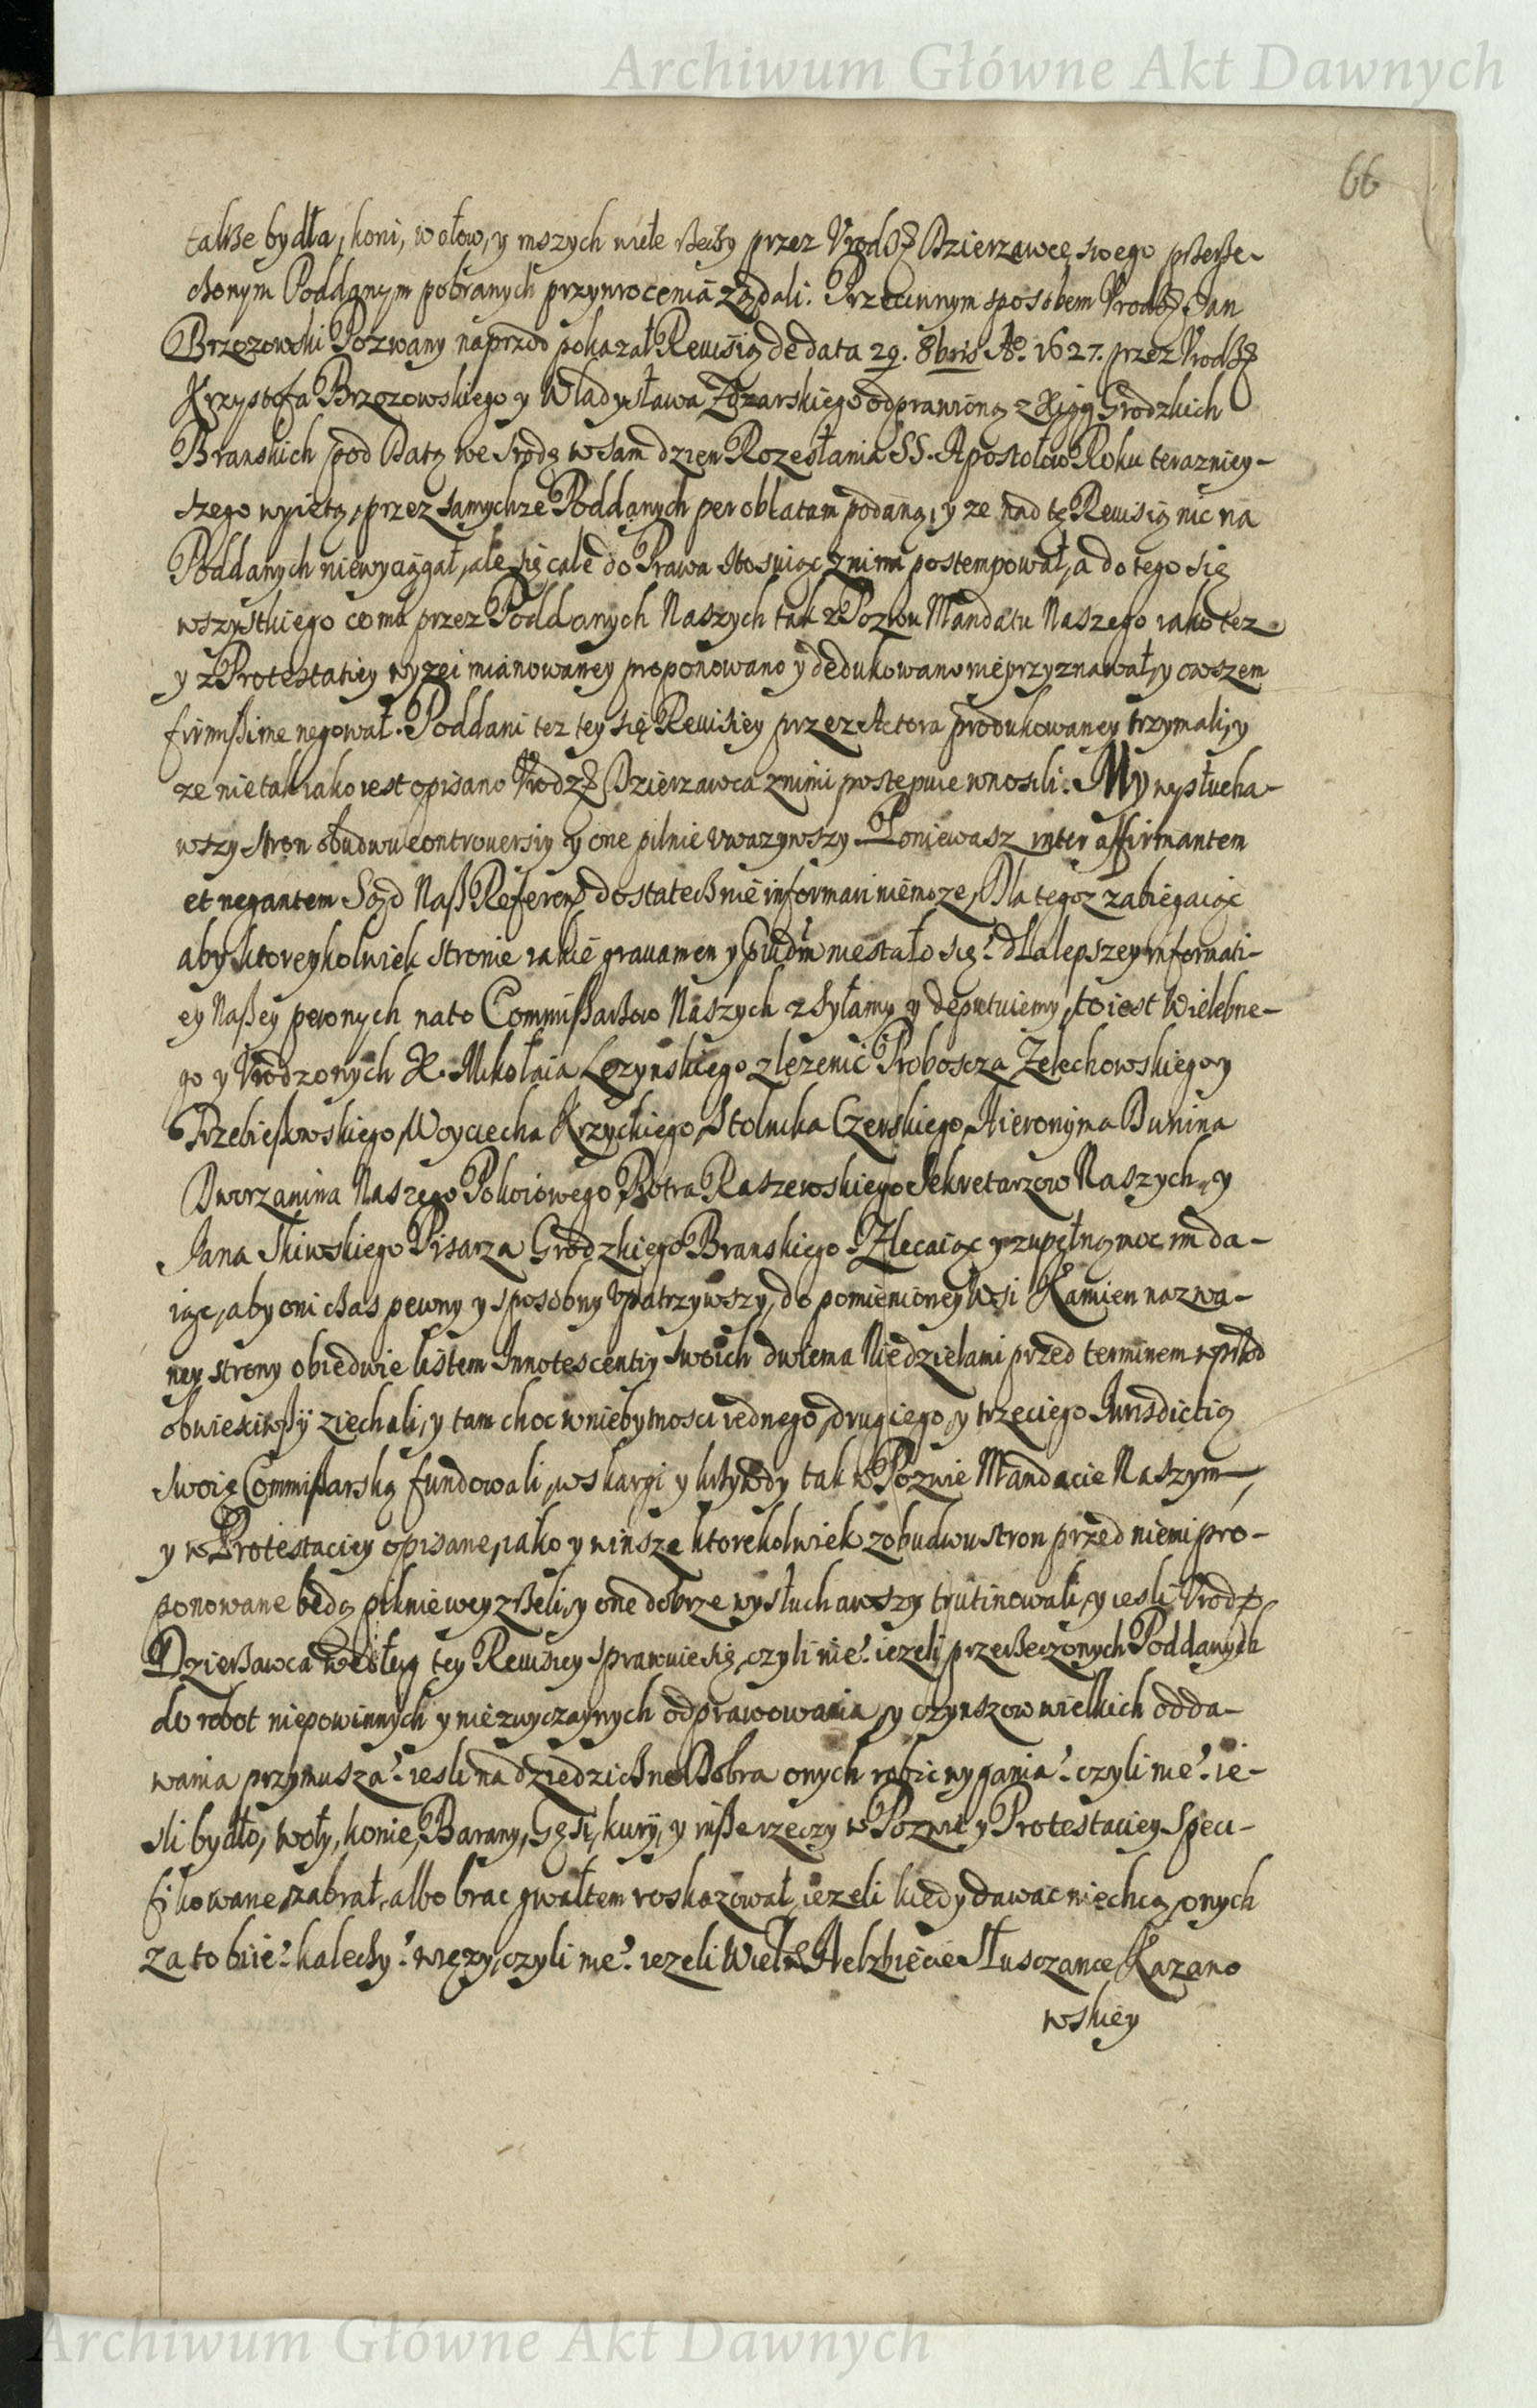 Archiwum Główne Akt Dawnych
66
takße bydła, koni, wołow, y inszych wiele rßeczy przez Vrodz. Dzierzawcę swego przerße-
czonym Poddanym pobranych przywrocenia żądali. Przeciwnym sposobem Vrodz. Jan
Brzozowski Pozwany naprzod pokazał Rewisią de data 29. 8bris Ao. 1627. przez Vrodz.
Krzysztofa Brzozowskiego y Władysława Zgzarskiego odprawioną z Xiąg Grodzkich
Branskich pod Datą we srodę w sam dzien Rozesłania SS. Apostołow Roku terazniey-
szego wyiętą, przez samychze Poddanych per oblatam podaną, y ze nad tę Rewisią nic na
Poddanych niewyciągał, ale się cale do Prawa stosuiąc z nimi postempował, a do tego się
wszystkiego co mu przez Poddanych Naszych tak z Pozwu Mandatu Naszego iako tez
y z Protestatiey wyzei mianowaney proponowano y dedukowano nieprzyznawał, y owszem
firmissime negował. Poddani tez tey się Rewisiey przez Actora produkowaney trzymali, y
ze nie tak iako iest opisano Vrodz. Dzierzawca z nimi postępuie wnosili. My wysłucha-
wszy stron obudwu controuersiy y one pilnie vwazywszy. Poniewasz inter affirmantem
et negantem Sąd Naß Referen. dostatecßnie informari niemoze, Dla tegoz zabiegaiąc
aby ktoreykolwiek stronie iakie grauamen y piudm niestało się. dla lepszey informati-
ey Naßey pewnych na to Commissarzow Naszych zsyłamy y deputuiemy, to iest Wielebne-
go y Vrodzonych X. Mikołaia Lozynskiego z lezenic Proboscza Zelechowskiego y
Przebießowskiego, Woyciecha Krzyckiego Stolnika Czerskiego, Hieronyma Bunina
Dworzanina Naszego Pokoiowego, Piotra Raszewskiego Sekretarzow Naszych, y
Jana Skiwskiego Pisarza Grodzkiego Branskiego. Zlecaiąc y zupełną moc im da-
iąc, aby oni cßas pewny y sposobny vpatrzywszy, do pomienioney Wsi Kamien nazwa-
ney strony obiedwie listem Innotescentiy swoich dwiema Niedzielami przed terminem wprzod
obwiesciwßy ziechali, y tam choc w niebytnosci iednego, drugiego, y trzeciego Iurisdictią
swoię Commissarską fundowali, w skargi y krzywdy tak w Pozwie Mandacie Naszym,
y w Protestaciey opisane, iako y w insze ktorekolwiek z obudwu stron przed niemi pro-
ponowane będą pilnie weyzrßeli, y one dobrze wysłuchawszy trutinowali, y iesli Vrodz.
Dzierßawca według tey Rewisiey sprawuie się, czyli nie? iezeli przerßeczonych Poddanych
do robot niepowinnych y niezwyczaynych odprawowania, y czynszow wielkich odda-
wania przymusza? iesli na dziedzicßne Dobra onych robic wygania? czyli nie? ie-
sli bydło, woły, konie, Barany, Gęsi, kury, y inße rzeczy w Pozwie y Protestaciey Speci-
fikowane, zabrał, albo brac gwałtem roskazował, iezeli kiedy dawac niechcą, onych
za to biie? kalecßy? więzy, czyli nie? iezeli Wielm. Helzbiecie Słusczance Kazano
wskiey
Archiwum Główne Akt Dawnych